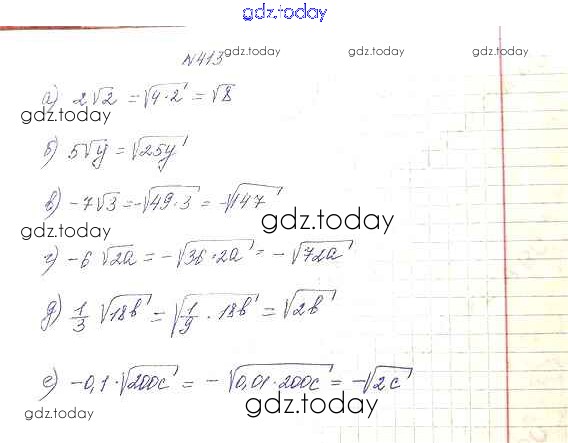 gdz.today
№413 gdz.today gdz.today gdz.today
а) 2√2 = √4·2 = √8
gdz.today
б) 5√y = √25y
в) -7√3 = -√49·3 = -√147
gdz.today gdz.today
г) -6√2a = -√36·2a = -√72a
д) 1/3 √18b = √1/9·18b = √2b
е) -0,1·√200c = -√0,01·200c = -√2c
gdz.today gdz.today